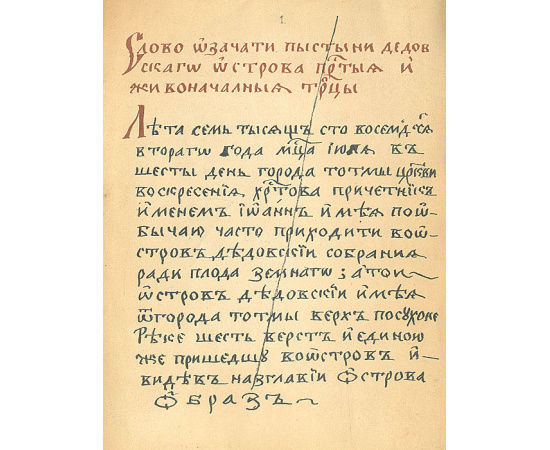 1
Слово ѡ зачати пыстыни дедов
скагѡ ѡ҆строва пр҃тыѧ и҆
живоначалныѧ тр҃цы
Лѣта семь тысѧщъ сто восемдесѧ
втораго года мц҃а іюлѧ въ
шесты день города тотмы црк҃ви
воскресениѧ хр҃това причетникъ
и҆менемъ іѡ҆а́ннъ и҆мѣѧ поѡ҆
бычаю часто приходити воѡ҆
стровъ дѣдовскіи собраниѧ
ради плода земнагѡ затои
ѡ҆стровъ дѣдовскіи и҆мѣѧ
ѿгорода тотмы верхъ посухоне
рѣке шесть верстъ и҆ единою
же пришедшу воѡ҆стровъ и҆
видѣвъ назглавіи ѻ҆строва
ѻ҆бразъ